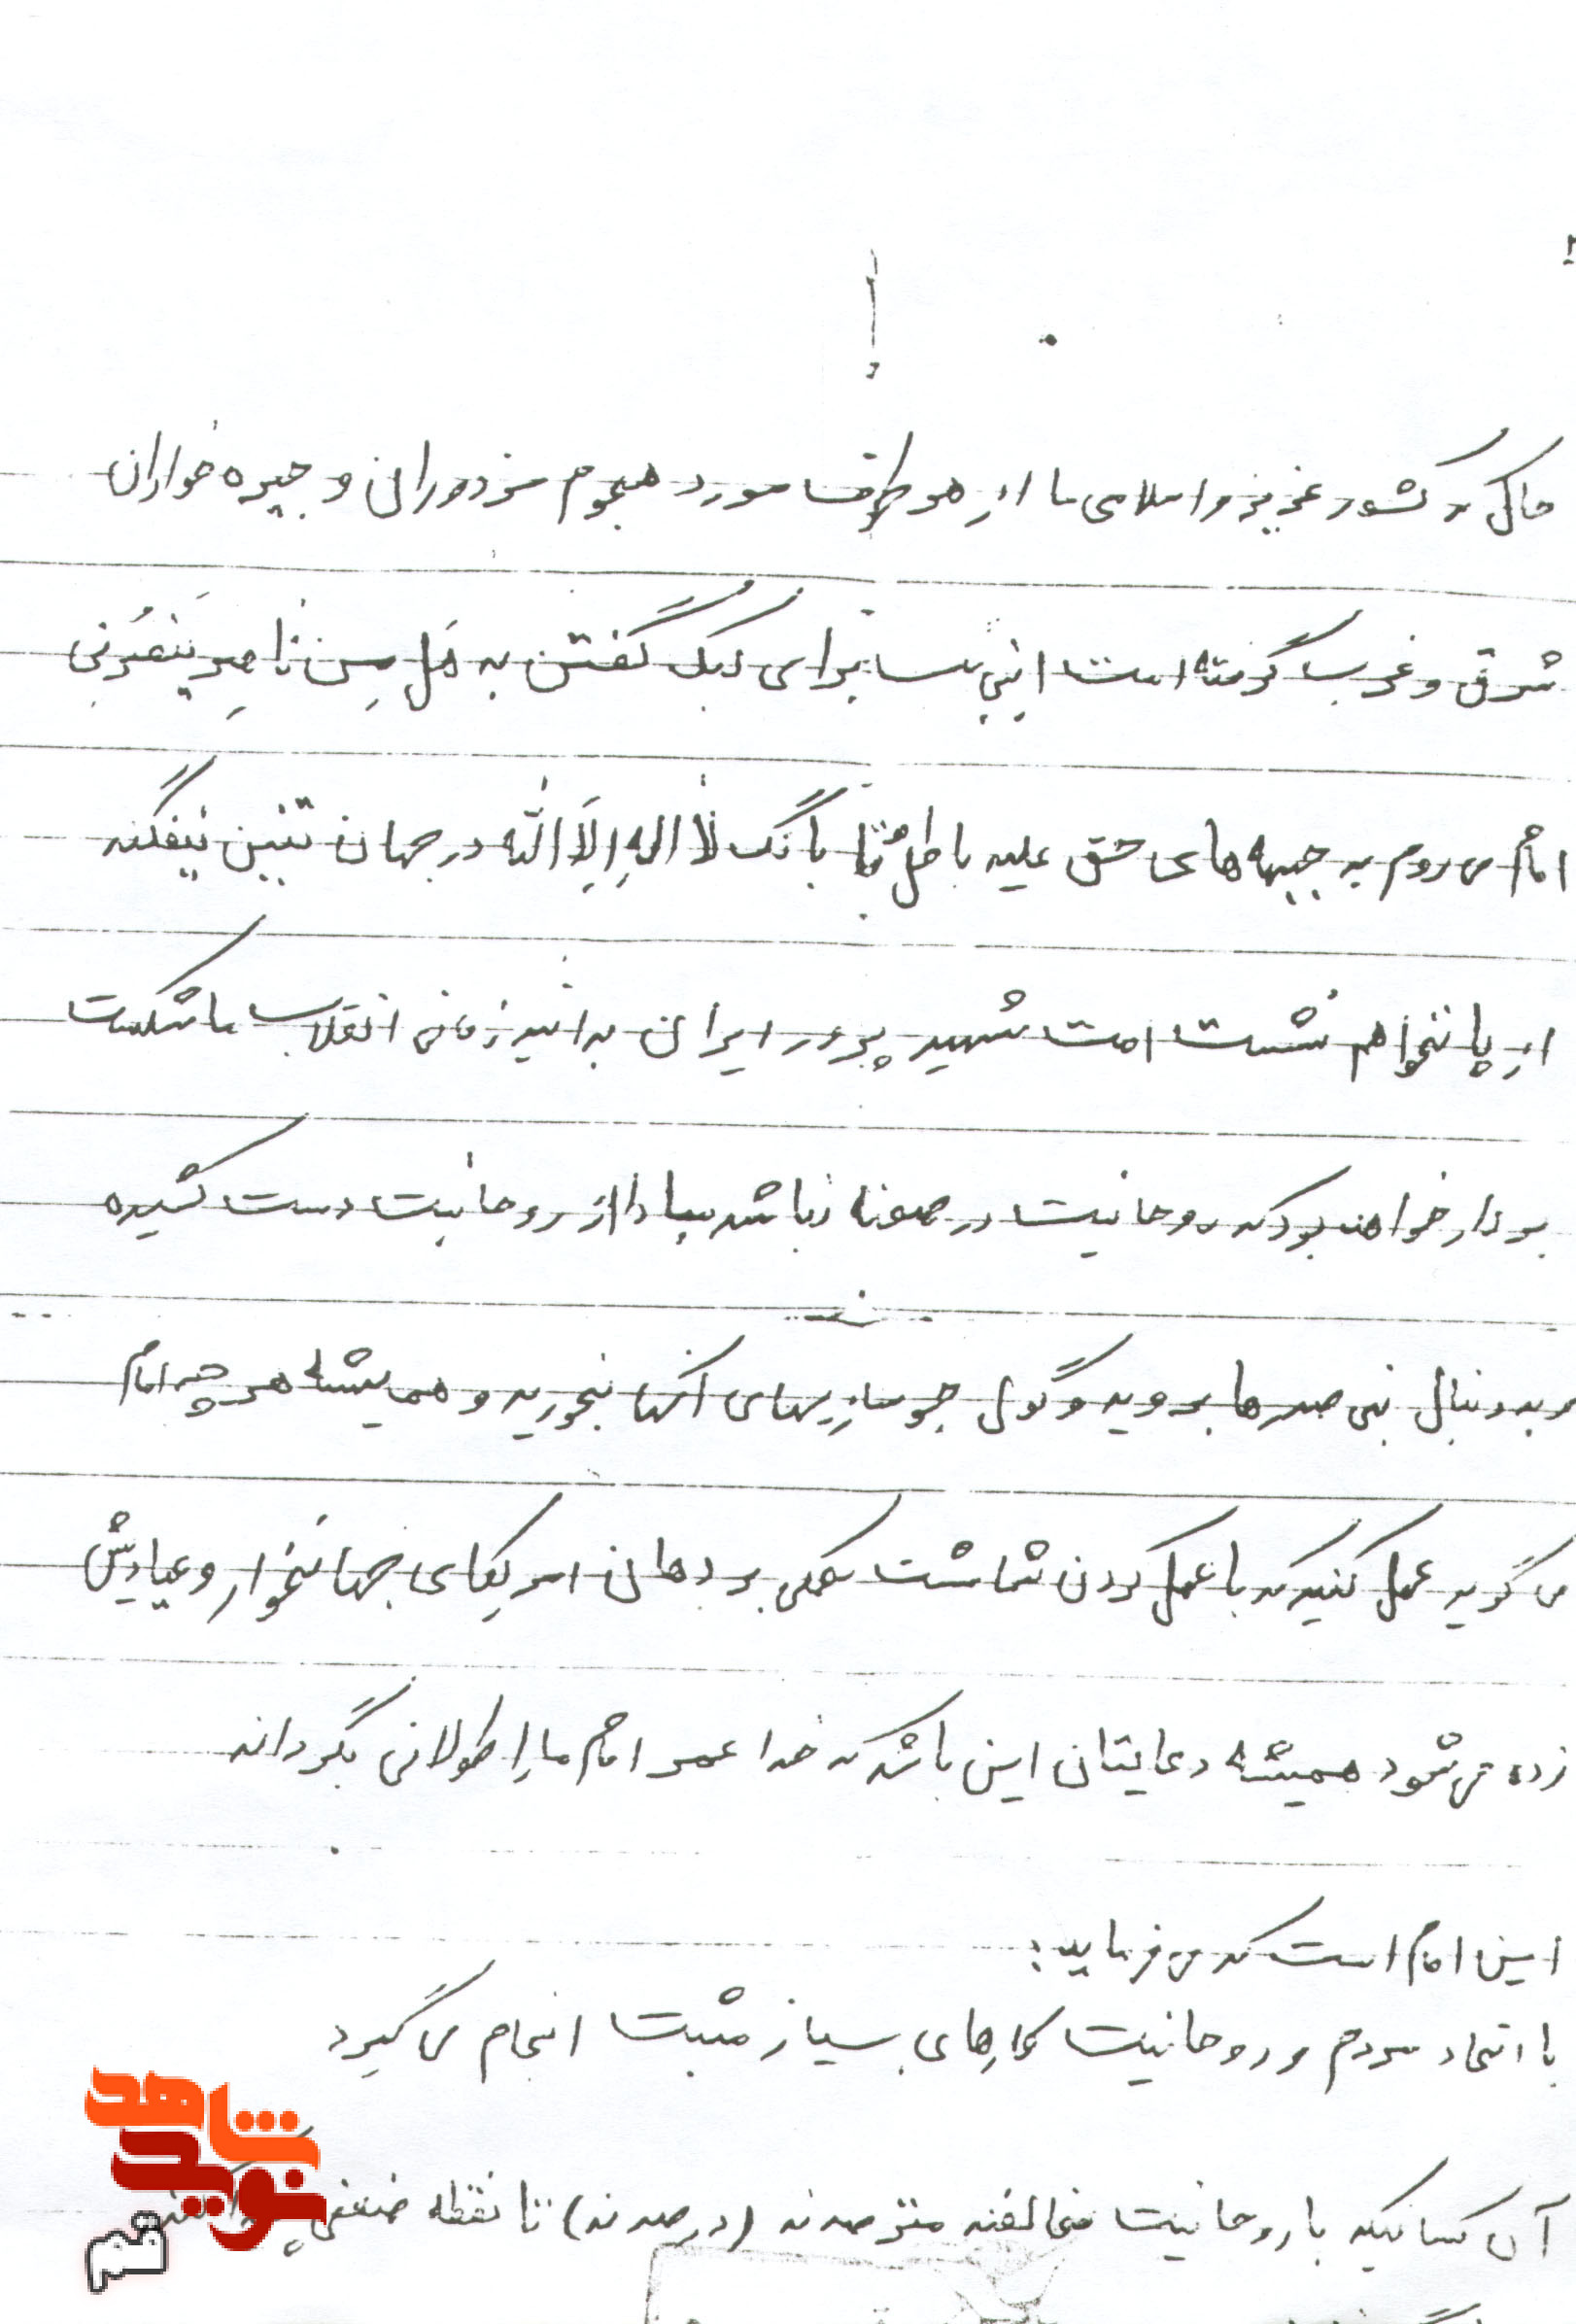 حال که کشور عزیز و اسلامی ما از هر طرف مورد هجوم مزدوران و جیره خواران
شرق و غرب گرفته است اینجانب برای لبیک گفتن به هَل مِن ناصِرٍ یَنصُرنی
امام می روم به جبهه های حق علیه باطل و تا بانگ لا اله اِلاَ الله در جهان تنین نیفکند
از پا نخواهم نشست امت شهید پرور ایران بدانید زمانی انقلاب ما شکست
بردار خواهد بود که روحانیت در صحنه نباشد مبادا از روحانیت دست کشیده
و بدنبال بنی صدرها بروید و گول جوسازیهای آنها نخورید و همیشه هر چه امام
می گوید عمل کنید که با عمل کردن شما مشت محکمی بر دهان امریکای جهانخوار و عیادیش
زده می شود همیشه دعایتان این باشد که خدا عمر امام ما را طولانی بگرداند
این امام است که می فرماید:
با اتحاد مردم و روحانیت کارهای بسیار مثبت انجام می گیرد
آن کسانیکه با روحانیت مخالفند مترصدند (درصدند) تا نقطه ضعفی پیدا کنند
نوید شاهد
قم